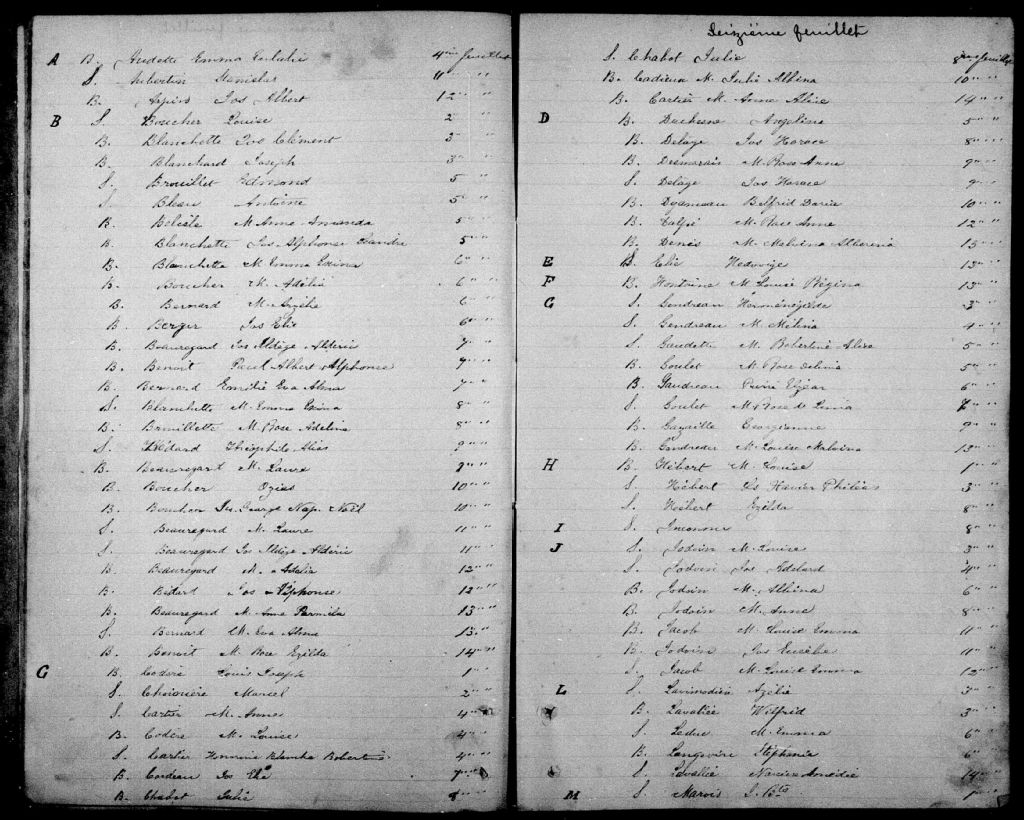 A B. Audette Emma Eulalie 4me feuillet
S. Aubertin Stanislas 11 " "
B. Arpin Jos Albert 12 " "
B S. Boucher Louise 2 "
B. Blanchette Jos Clément 3 "
B. Blanchard Joseph 3 " "
S. Brouillet Edmond 5 " "
S. Bleau Antoine 5 " "
B. Belisle M. Anne Amanda 5 " "
B. Blanchette Jos Alphonse Leandre 5 " "
B. Blanchette M. Emma Exina 6 " "
B. Boucher M. Adélia 6 " "
B. Bernard M. Azélie 6 "
B. Berger Jos Elie 6 " "
B. Beauregard Jos Aldège Aldéric 7 " "
B. Benoit Paul Albert Alphonse 7 " "
B. Bernard Emilie Eva Alma 7 " "
S. Blanchette M. Emma Exina 8 " "
B. Brouillette M. Rose Adelina 8 " "
S. Bédard Théophile Alias 9 " "
B. Beauregard M. Laure 9 " "
B. Boucher Ozias 10 " "
B. Boucher Jos. George Nap. Noël 10 " "
S. Beauregard M. Laure 11 " "
S. Beauregard Jos Aldège Aldéric 11 " "
B. Beauregard M. Adelia 12 " "
B. Bédard Jos Alphonse 12 " "
B. Beauregard M. Anne Parmélia 13 " "
S. Bernard M. Eva Alma 13 " "
B. Benoit M. Rose Exilda 14 " "
C B. Codère Louis Joseph 1 "
S. Choinière Marcel 2 " "
S. Cartier M. Anne 4 " "
B. Codère M. Louise 4 " "
S. Cartier Honorine Blanche Robertine 4 " "
B. Cordeau Jos Elie 7 " "
B. Chabot Julie 8 " "
Seizième feuillet
S. Chabot Julie 8me feuillet
B. Cadieux M. Julie Albina 10 " "
B. Cartier M. Anne Alice 14 " "
D B. Duchesne Angelina 5 " "
B. Delâge Jos Horace 8 " "
B. Desmarais M. Rose Anne 9 " "
S. Delâge Jos Horace 9 " "
B. Belfrid Daria 10 " "
B. M. Rose Anne 12 " "
B. Denis M. Malvina 13 " "
E B. Elie Hedwige 13 " "
F B. Fontaine M. Louise Régina 13 " "
G S. Gendreau Herménégilde 3 "
S. Gendreau M. Mélina 4 " "
S. Gaudette M. Robertine Alice 5 " "
B. Goulet M. Rose Delima 5 " "
B. Gaudreau Pierre Elzéar 6 " "
S. Goulet M. Rose de Lima 7 " "
B. Gazaille Georgienne 9 " "
B. Gendreau M. Louise Malvina 13 " "
H B. Hébert M. Louise 1 " "
S. Hébert Frs Xavier Philias 3 " "
S. Hébert Exilda 8 " "
I S. Inconnu 8 " "
J S. Jodoin M. Louise 3 " "
S. Jodoin Jos Adelard 4 " "
B. Jodoin M. Albina 6 " "
B. Jodoin M. Anne 8 " "
B. Jacob M. Louise Emma 11 " "
B. Jodoin Jos Eusèbe 11 " "
S. Jacob M. Louise Emma 12 " "
L S. Lavimodière Azélie 3 " "
B. Lavallée Wilfrid 3 " "
S. Leduc M. Emma 6 " "
B. Stéphanie 6 " "
S. Lavallée Narcisse Amédée 14 " "
M S. Marois J. Bte 1 " "